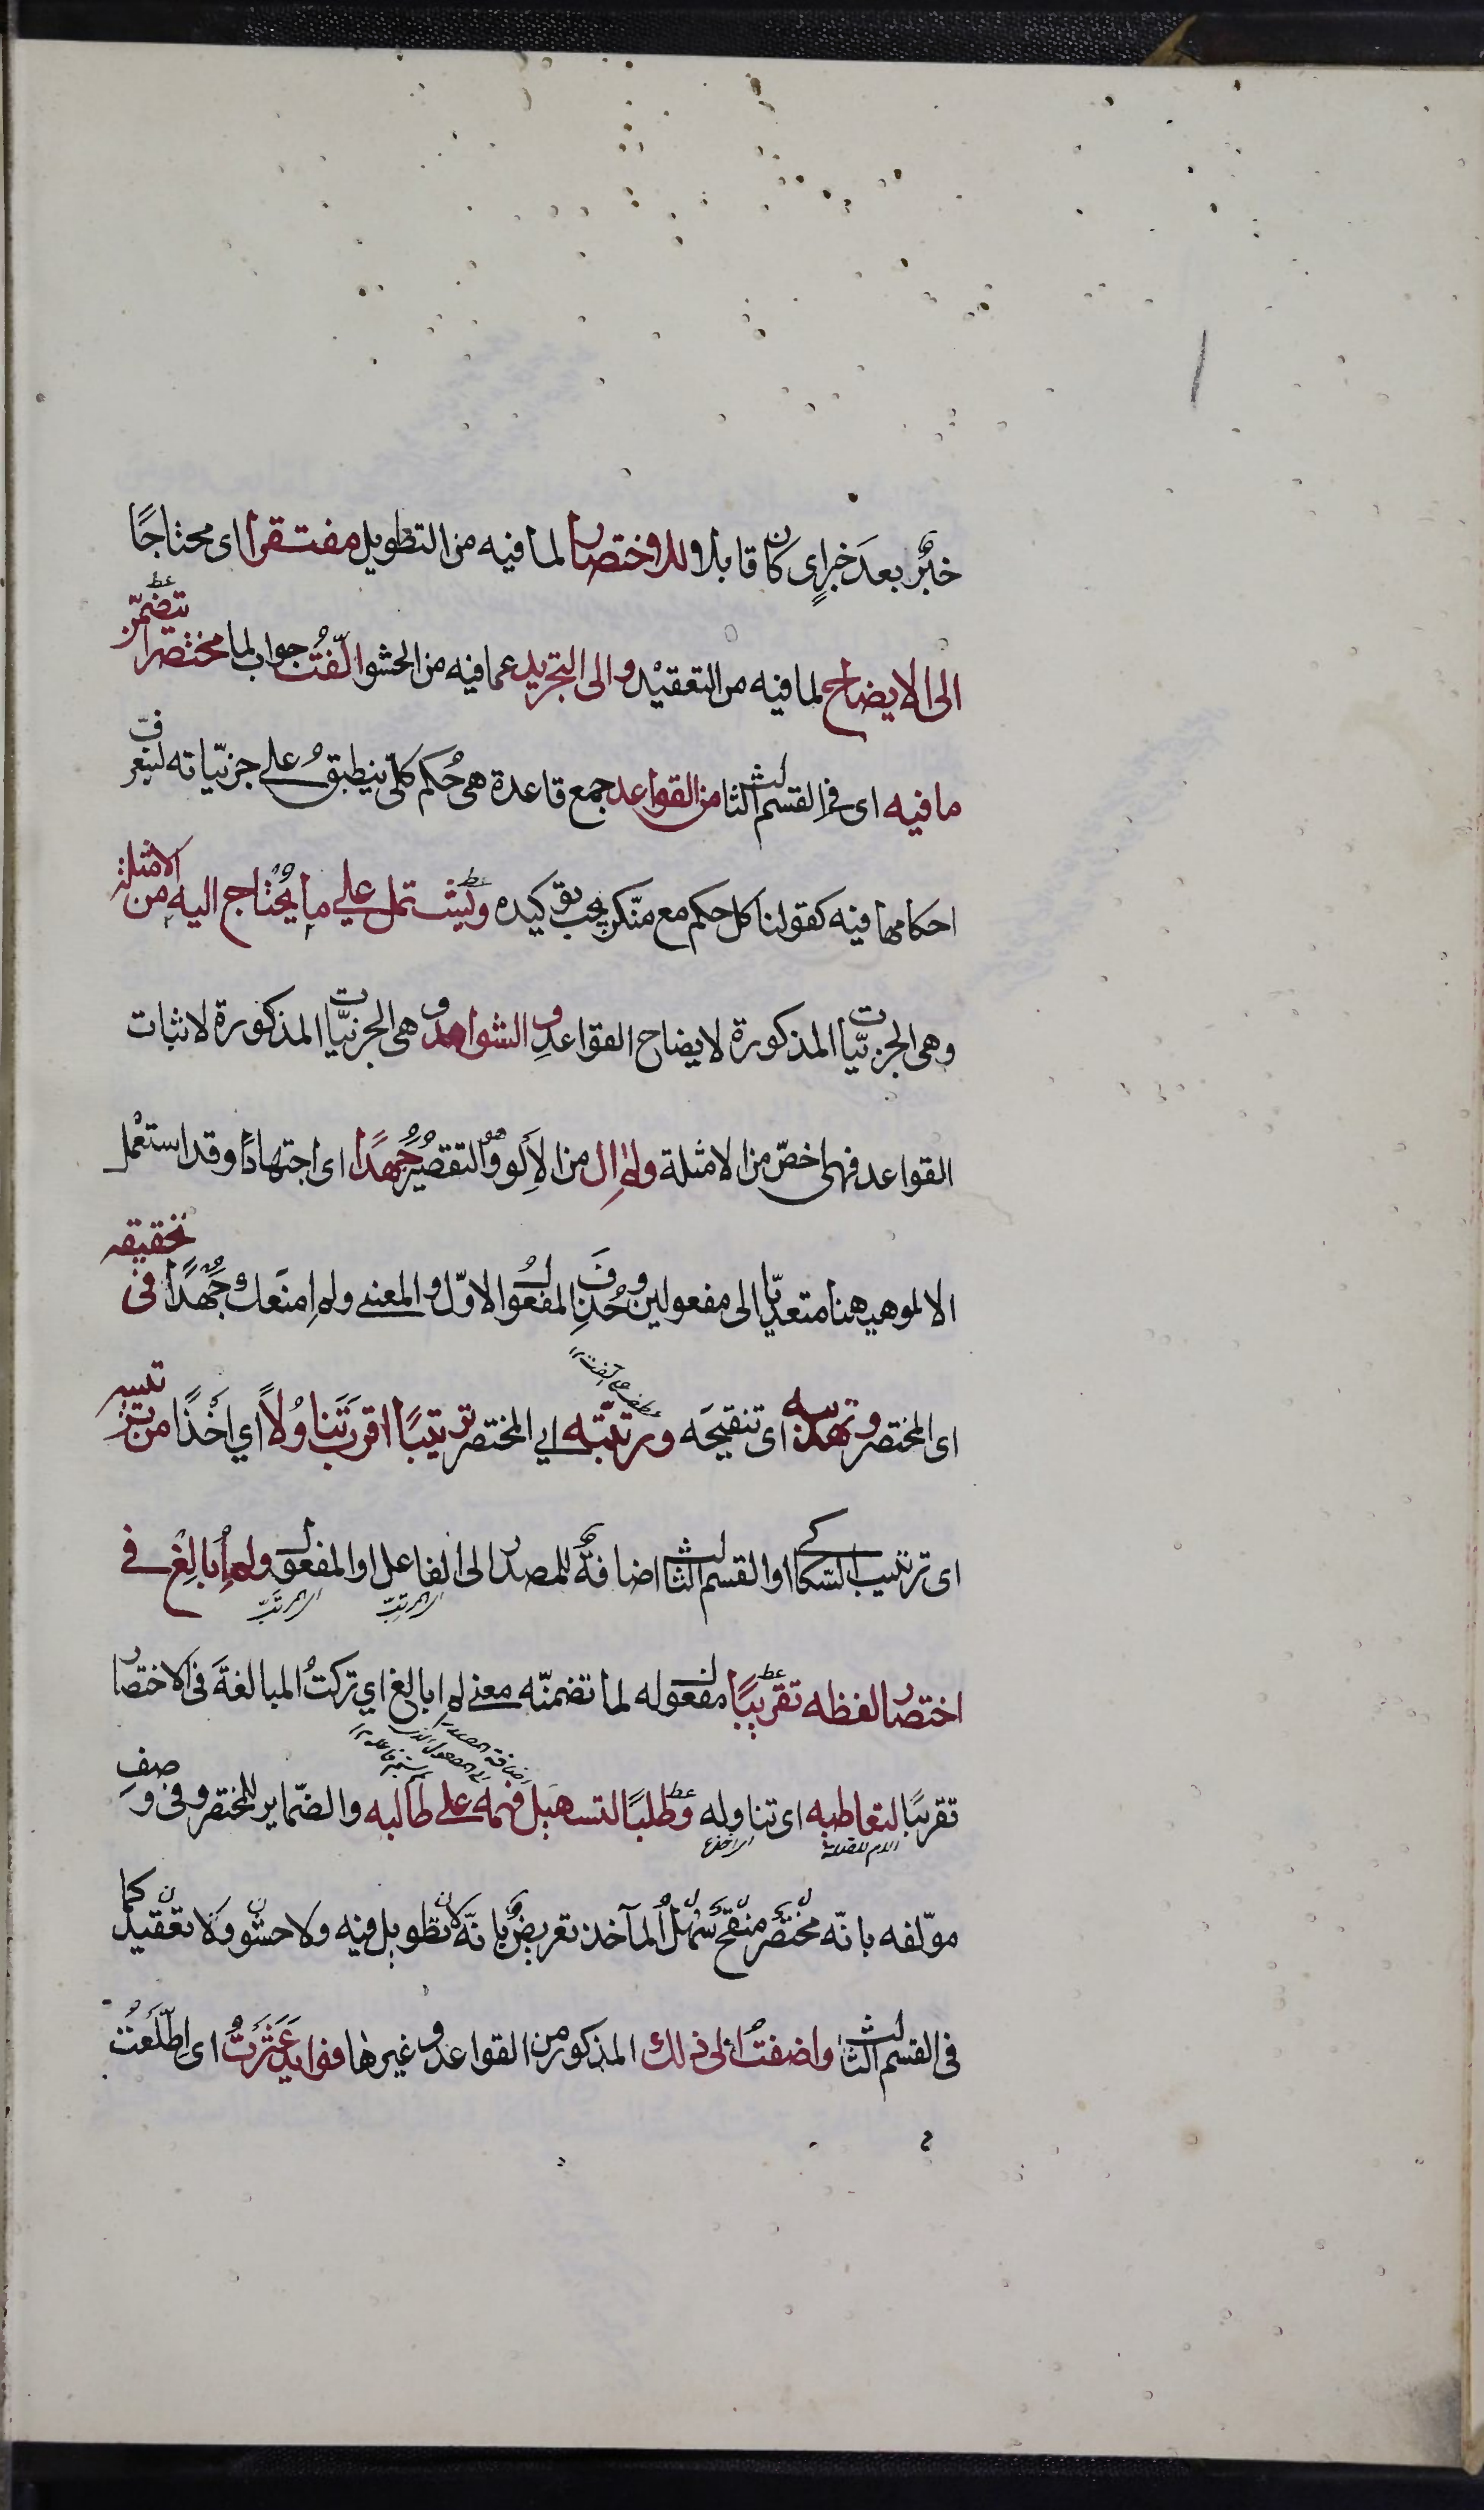 خبرٌ بعدَ خبرٍ اى كان قابلا للاختصار لما فيه من التطويل مفتقرا اى محتاجًا
الى الايضاح لما فيه من التعقيْد والى التجريد عما فيه من الحشو الّفتُ جواب لما مختصرا يتضمّن
ما فيه اى فى القسم الثالث من القواعد جمع قاعدة هى حُكم كلّى ينطبقُ على جزئيّاته ليتعرّف
احكامها فيه كقولنا كل حكم مع منكر يجب توكيده ويشتمل على ما يُحْتاج اليه من الامثلة
وهى الجزئيّات المذكورة لايضاح القواعدِ والشواهد وهى الجزئيّات المذكورة لاثبات
القواعد فهى اخصّ من الامثلة ولم اٰلُ من الألو وهو التقصيرُ جُهدًا اى اجتهادًا وقد استعْمل
الالو هيهنا متعديّا الى مفعولين وحُذِفَ المفعولُ الاوّل والمعنى ولم امنَعك جُهْدًا فى تحقيقه
اى المختصر وتهذيبه اى تنقيحَه ورتّبته اى المختصر ترتيبًا اقربَ تَناوُلاً اي اَخْذًا من ترتيبه
اى ترتيب السّكاكى او القسم الثالث اضافةٌ للمصدر الى الفاعل او المفعول ولم اُبالِغْ فى
اختصار لفظه تقريبًا مفعول له لما تضمنّه معنى لم ابالغ اي تركتُ المبالغةَ فى الاختصار
تقريبًا لتعاطيه اى تناوله وطلبًا لتسهيل فهمه على طالبه والضّماير للمختصر وفى وصفِ
مولّفه بانّه مختصر منقّح سَهْلُ المآخذ تعريضٌ بانّه لا تطويل فيه ولا حشو ولا تعقيد كما
فى القسم الثالث واضفتُ الى ذلك المذكور من القواعد وغيرها فوايد عَثَرْتُ اى اِطّلَعتُ